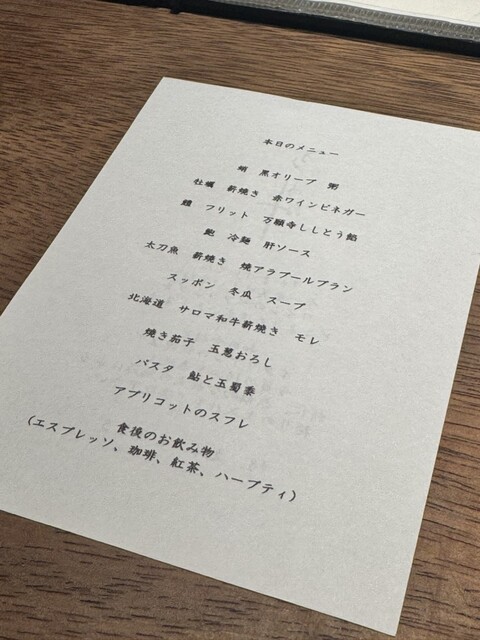 本日のメニュー
黒オリーブ 粥
牡蠣 薪焼き 赤ワインビネガー
鱧 フリット 万願寺ししとう餡
鮑 冷麺 肝ソース
太刀魚 薪焼き 焼アラブールブラン
スッポン 冬瓜 スープ
北海道 サロマ和牛薪焼き モレ
焼き茄子 玉葱おろし
パスタ 鮎と玉蜀黍
アプリコットのスフレ
食後のお飲み物
(エスプレッソ、珈琲、紅茶、ハーブティ)